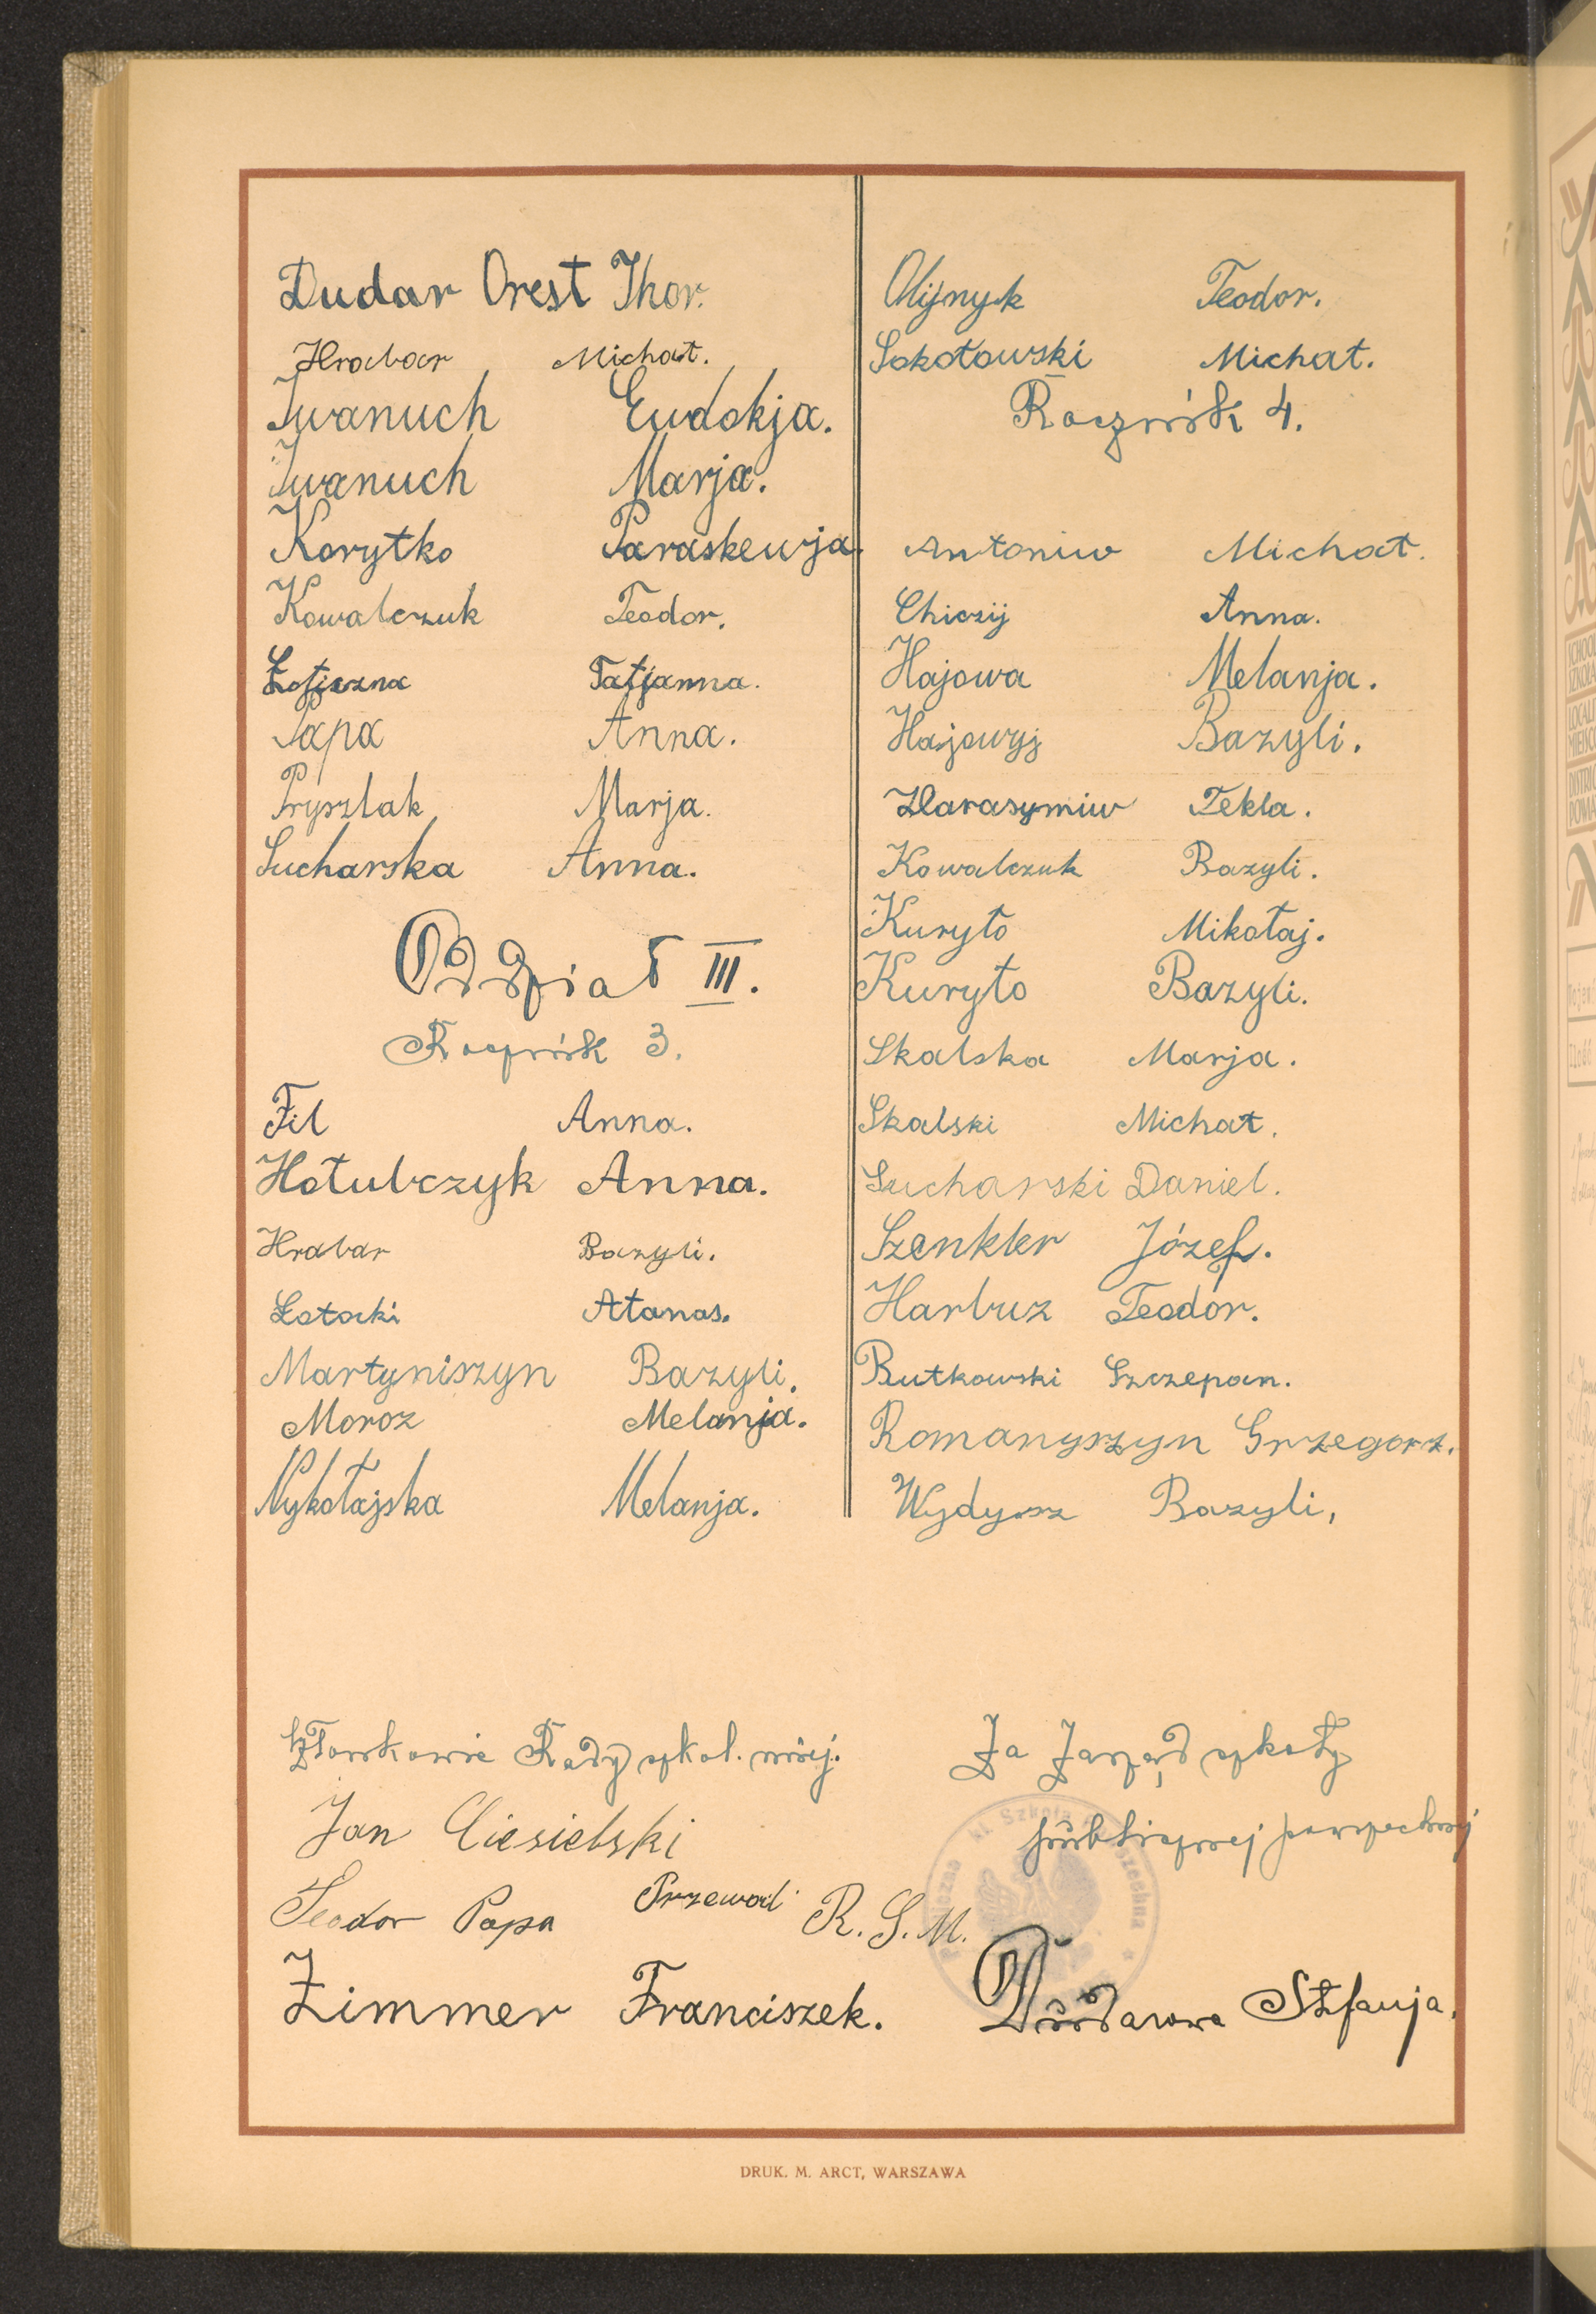 Dudar Orest Ihor.
Hrabar Michał.
Iwanuch Ewdokja.
Iwanuch Marja.
Korytko Paraskewja.
Kowalczuk Teodor.
Tatjanna.
Papa Anna.
Pryszlak Marja.
Sucharska Anna.
Oddział III.
Rocznik 3.
Fil Anna.
Hołubczyk Anna.
Hrabar Bazyli.
Łotocki Atanas.
Martyniszyn Bazyli.
Moroz Melanja.
Nykołajska Melanja.
Olijnyk Teodor.
Sokołowski Michał.
Rocznik 4.
Antoniw Michał.
Chiczij Anna.
Hajowa Melanja.
Hajowyj Bazyli.
Harasymiw Tekla.
Kowalczuk Bazyli.
Kuryło Mikołaj.
Kuryło Bazyli.
Skalska Marja.
Skalski Michał.
Sucharski Daniel.
Szenkler Józef.
Harbuz Teodor.
Rutkowski Szczepan.
Romanyszyn Grzegorz.
Wydysz Bazyli,
Członkowie Rady szkol. miej.
Jan Ciesielski
Teodor Papa Przewod. R.S.M.
Zimmer Franciszek.
Za Zarząd szkoły
publicznej powszechnej
Dudarowa Stefanja.
DRUK. M. ARCT, WARSZAWA